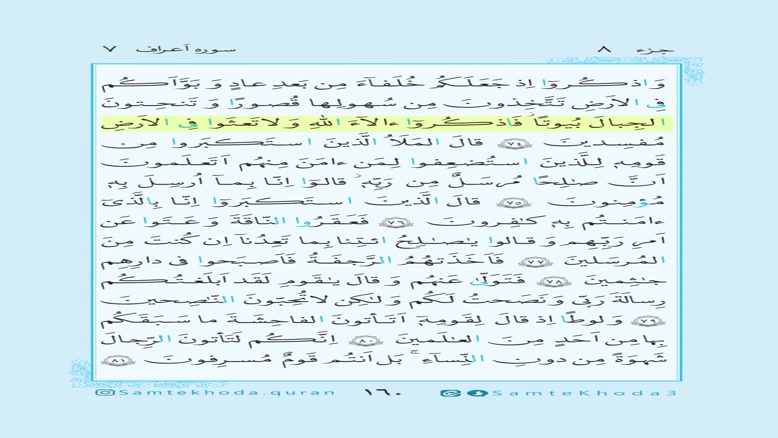 جزء ۸
سوره آعراف ۷
وَ اذكُروا اِذ جَعَلَكُم خُلَفآءَ مِن بَعدِ عادٍ وَ بَوَّاَكُم
فِي الاَرضِ تَتَّخِذونَ مِن سُهولِها قُصورًا وَ تَنحِتونَ
الجِبالَ بُيوتًا ۖ فَاذكُروا ءالآءَ اللهِ وَ لا تَعثَوا فِي الاَرضِ
مُفسِدينَ ﴿۷۴﴾ قالَ المَلَاُ الَّذينَ استَكبَروا مِن
قَومِهٖ لِلَّذينَ استُضعِفوا لِمَن ءامَنَ مِنهُم اَتَعلَمونَ
اَنَّ صٰلِحًا مُرسَلٌ مِن رَبِّهٖ ۚ قالوا اِنّا بِمآ اُرسِلَ بِهٖ
مُؤمِنونَ ﴿۷۵﴾ قالَ الَّذينَ استَكبَروا اِنّا بِالَّذى
ءامَنتُم بِهٖ كٰفِرونَ ﴿۷۶﴾ فَعَقَرُوا النّاقَةَ وَ عَتَوا عَن
اَمرِ رَبِّهِم وَ قالوا يٰصٰلِحُ ائتِنا بِما تَعِدُنا اِن كُنتَ مِنَ
المُرسَلينَ ﴿۷۷﴾ فَاَخَذَتهُمُ الرَّجفَةُ فَاَصبَحوا فى دارِهِم
جٰثِمينَ ﴿۷۸﴾ فَتَوَلّىٰ عَنهُم وَ قالَ يٰقَومِ لَقَد اَبلَغتُكُم
رِسالَةَ رَبّى وَ نَصَحتُ لَكُم وَ لٰكِن لا تُحِبّونَ النّٰصِحينَ
﴿۷۹﴾ وَ لوطًا اِذ قالَ لِقَومِهٖ اَتَأتونَ الفاحِشَةَ ما سَبَقَكُم
بِها مِن اَحَدٍ مِنَ العٰلَمينَ ﴿۸۰﴾ اِنَّكُم لَتَأتونَ الرِّجالَ
شَهوَةً مِن دونِ النِّسآءِ ۚ بَل اَنتُم قَومٌ مُسرِفونَ ﴿۸۱﴾
Samtekhoda.quran
۱۶۰
SamteKhoda3